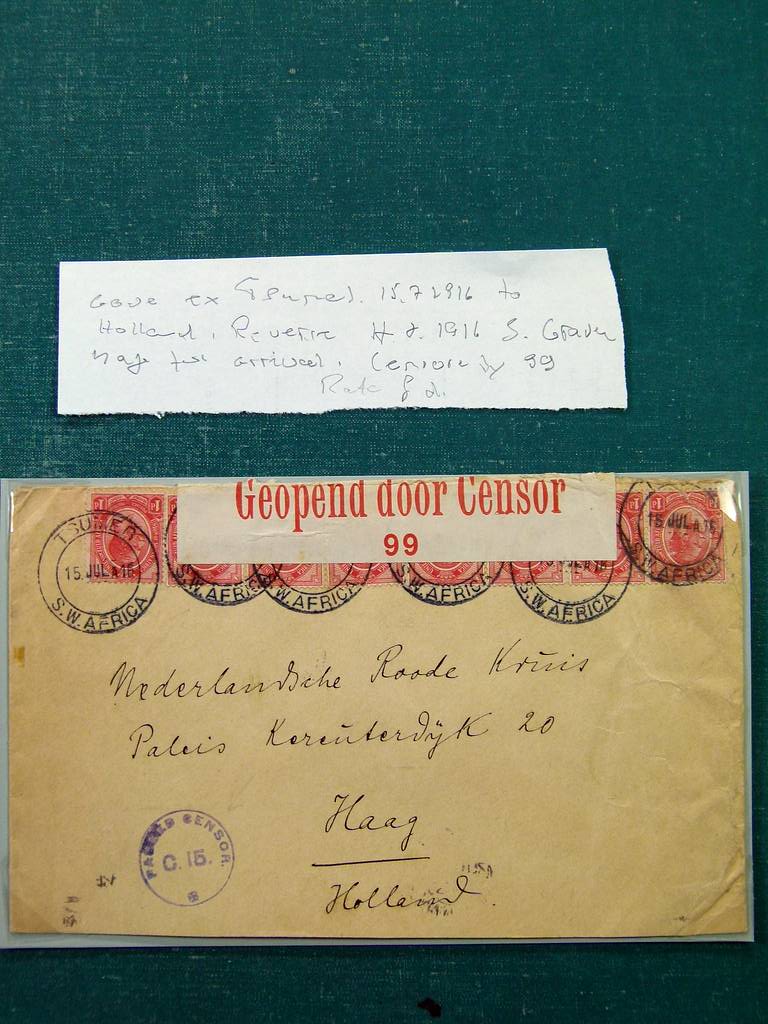 15.7 1916 to
Holland. Reverse 1916 S.
arrival. Censore by 99
Rate 8 d.
Geopend door Censor
99
TSUMEB
15 JUL A 16
S.W. AFRICA
S.W. AFRICA
S.W. AFRICA
S.W. AFRICA
S.W. AFRICA
15 JUL A 16
S.W. AFRICA
Nederlandsche Roode Kruis
Paleis Kereüterdÿk 20
Haag
Holland.
PASSED CENSOR.
C. 15.